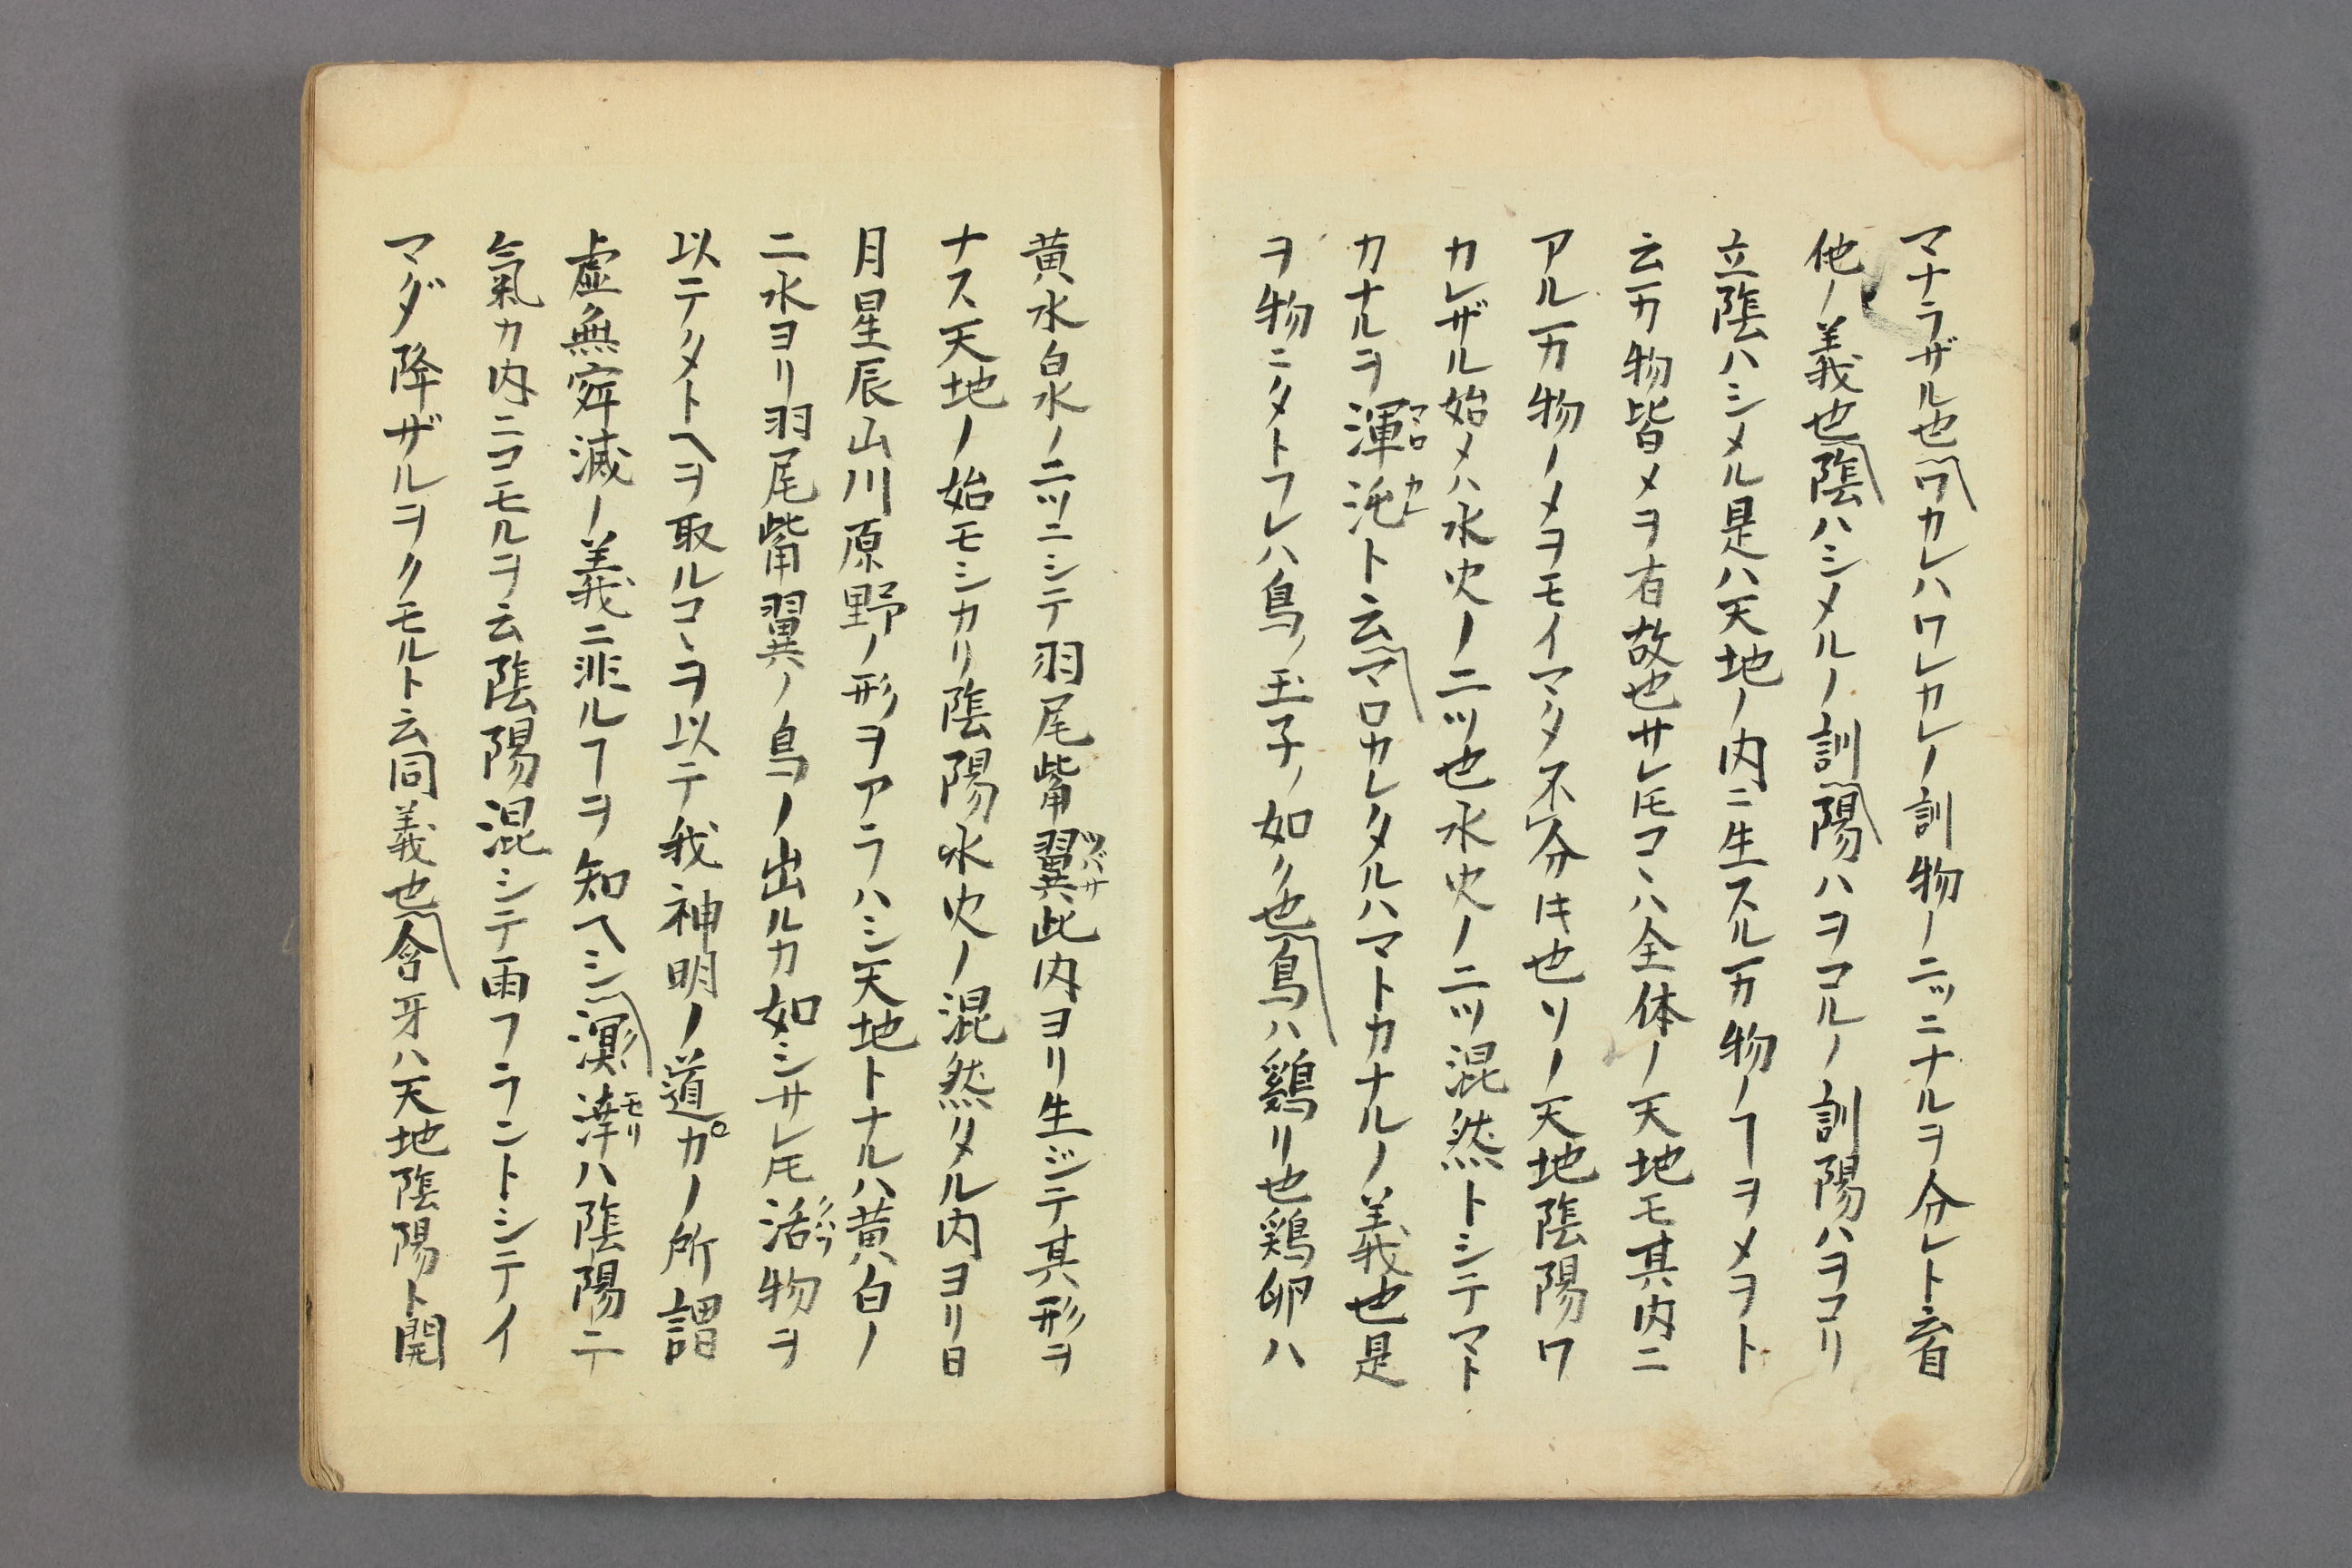 マナラザル也ワカレハワレカレノ訓物ノニッニナルヲ分レト云自
他ノ義也陰ハシメルノ訓陽ハヲコルノ訓陽ハヲコリ
立陰ハシメル是ハ天地ノ内ニ生スル万物ノヿヲメヲト
云万物皆メヲ有故也サレ𪜈コヽハ全体ノ天地モ其内ニ
アル万物ノメヲモイマダ不分ㇳキ也ソノ天地陰陽ワ
カレザル始メハ水火ノ二ツ也水火ノ二ツ混然トシテマト
カナルヲ渾沌ト云マロカレタルハマトカナルノ義也是
ヲ物ニタトフレハ鳥ノ玉子ノ如ク也鳥ハ鷄リ也鶏卵ハ
黄水白水ノ二ツニシテ羽尾觜翼ツバサ此内ヨリ生ジテ其形ヲ
ナス天地ノ始モシカリ陰陽水火ノ混然タル内ヨリ日
月星辰山川原野ノ形ヲアラハシ天地トナルハ黄白ノ
二水ヨリ羽尾觜翼ノ鳥ノ出ルカ如シサレ𪜈活物ヲ
以テタトヘヲ取ルコヽヲ以テ我神明ノ道カ゚ノ所謂
虚無寂滅ノ義ニ非ルヿヲ知ヘシ溟涬ハ陰陽ニ
氣カ内ニコモルヲ云陰陽混シテ雨フラントシテイ
マダ降ザルヲクモルト云同義也含牙ハ天地陰陽ト開